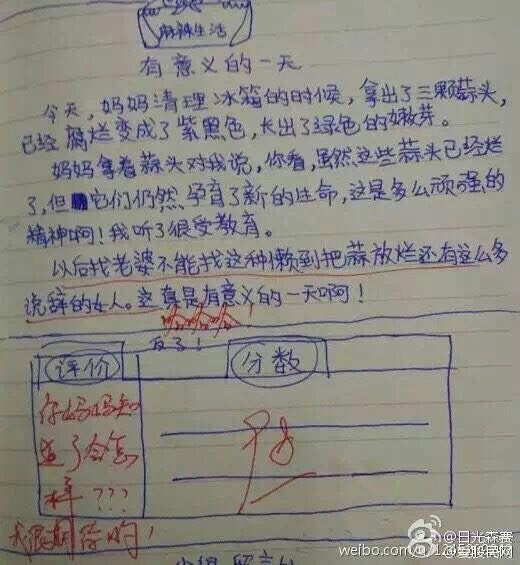 麻辣生活
有意义的一天
今天，妈妈清理冰箱的时候，拿出了三颗蒜头，
已经腐烂变成了紫黑色，长出了绿色的嫩芽。
妈妈拿着蒜头对我说，你看，虽然这些蒜头已经烂
了，但它们仍然孕育了新的生命，这是多么顽强的
精神啊！我听了很受教育。
以后找老婆不能找这种懒到把蒜放烂还有这么多
说辞的女人。这真是有意义的一天啊！
哈哈哈
评价
分数
你妈妈知
道了会怎
样？？？
优
@日光森赛
@爱搜民网
weibo.com/